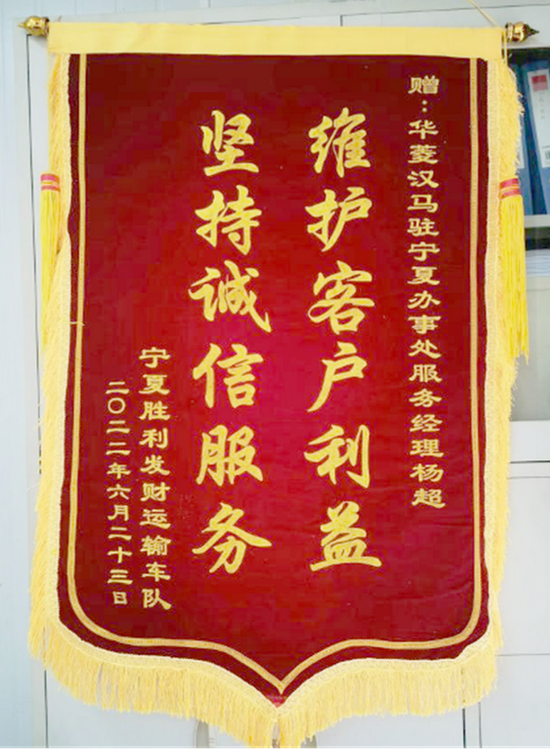 赠：华菱汉马驻宁夏办事处服务经理杨超
维护客户利益
坚持诚信服务
宁夏胜利发财运输车队
二〇二二年六月二十三日